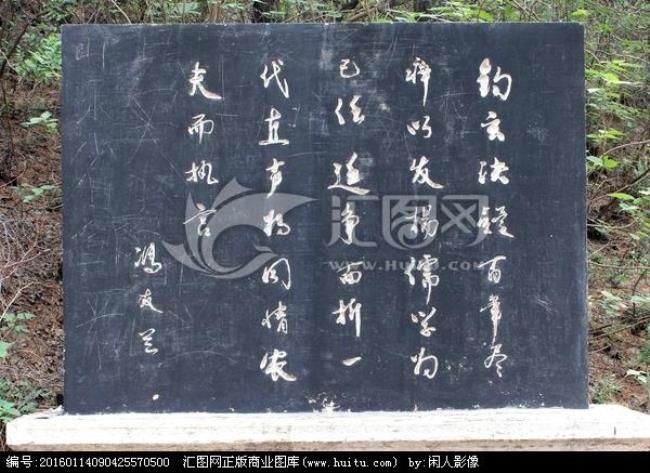 钩玄决疑百年尽
瘁以发扬儒学为
己任廷争面折一
代直声为同情农
夫而执言
冯友兰
汇图网
www.huitu.com
编号:20160114090425570500 汇图网正版商业图库(www.huitu.com) by:闲人影像